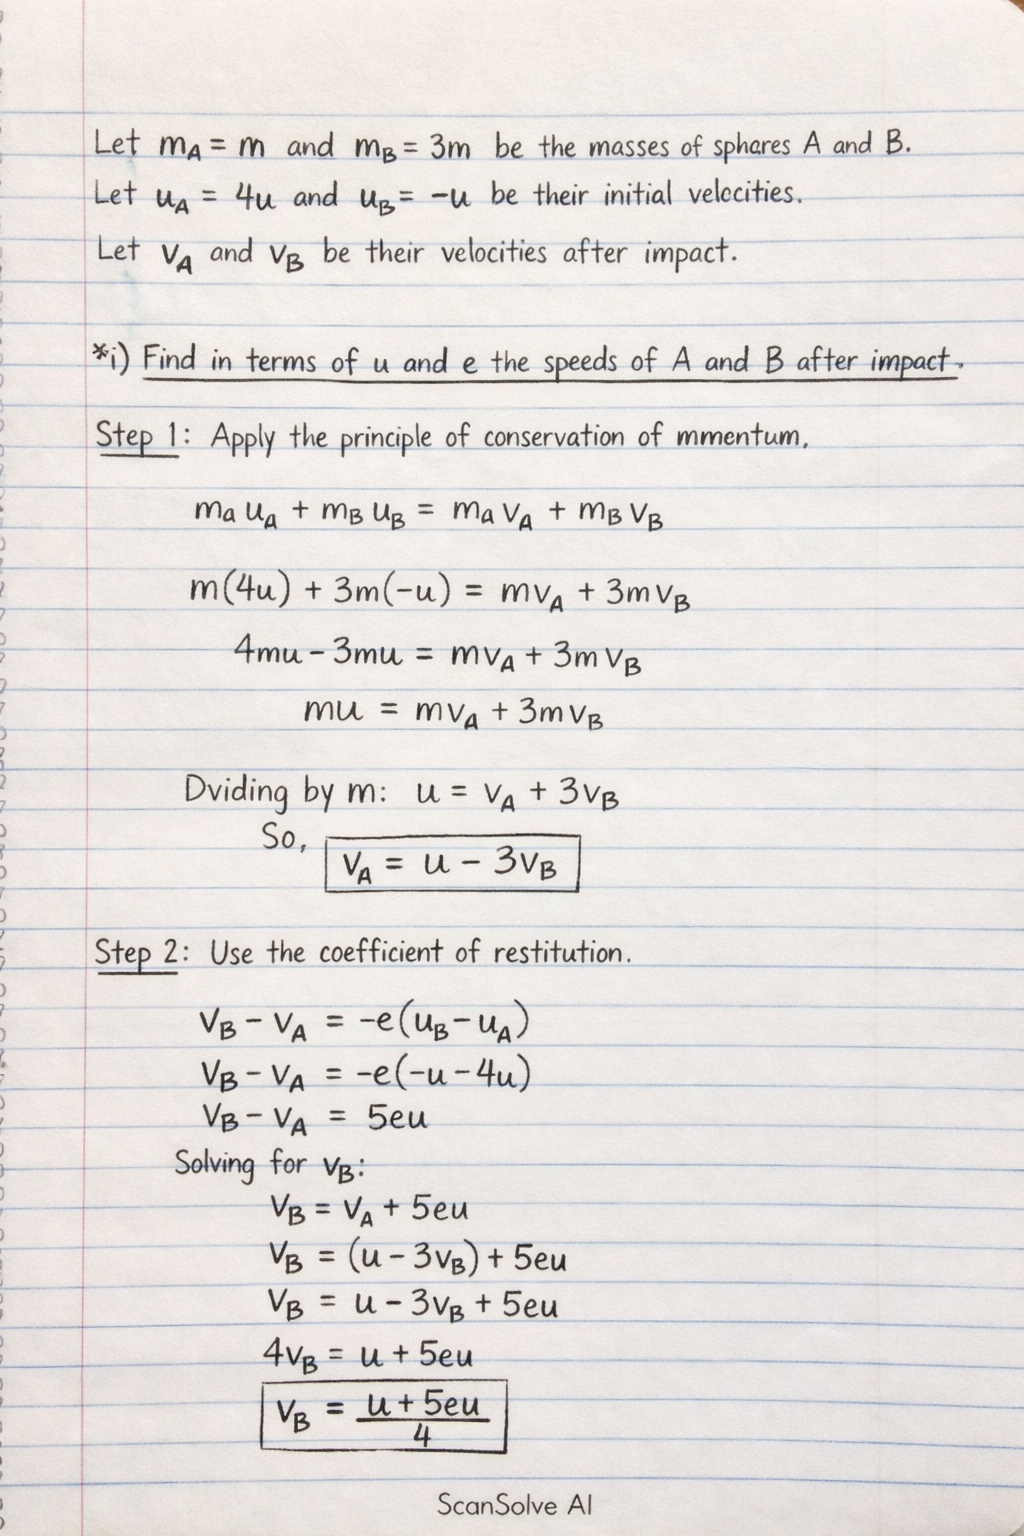 Let m_A = m and m_B = 3m be the masses of sphares A and B.
Let u_A = 4u and u_B = -u be their initial velocities.
Let v_A and v_B be their velocities after impact.
*i) Find in terms of u and e the speeds of A and B after impact.
Step 1: Apply the principle of conservation of mmentum,
m_a u_A + m_B u_B = m_a v_A + m_B v_B
m(4u) + 3m(-u) = mv_A + 3mv_B
4mu - 3mu = mv_A + 3mv_B
mu = mv_A + 3mv_B
Dviding by m: u = v_A + 3v_B
So,
v_A = u - 3v_B
Step 2: Use the coefficient of restitution.
v_B - v_A = -e(u_B - u_A)
v_B - v_A = -e(-u - 4u)
v_B - v_A = 5eu
Solving for v_B:
v_B = v_A + 5eu
v_B = (u - 3v_B) + 5eu
v_B = u - 3v_B + 5eu
4v_B = u + 5eu
v_B = (u + 5eu)/4
ScanSolve AI